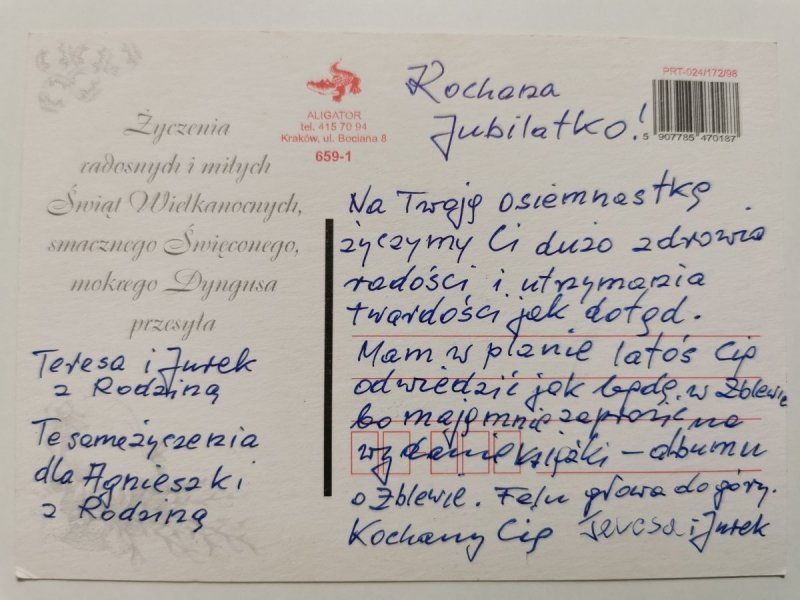 Życzenia
radosnych i miłych
Świąt Wielkanocnych,
smacznego Święconego,
mokrego Dyngusa
przesyła
Teresa i Jurek
z Rodziną
Te same życzenia
dla Agnieszki
z Rodziną
ALIGATOR
tel. 415 70 94
Kraków, ul. Bociana 8
659-1
PRT-024/172/98
5 907785 470187
Kochana
Jubilatko!
Na Twoją osiemnastkę
życzymy Ci dużo zdrowia
radości i utrzymania
twardości jak dotąd.
Mam w planie latoś Cię
odwiedzić jak będę w Zblewie
bo mają mnie zaprosić na
wydanie książki – albumu
o Zblewie. Felu głowa do góry.
Kochamy Cię Teresa i Jurek